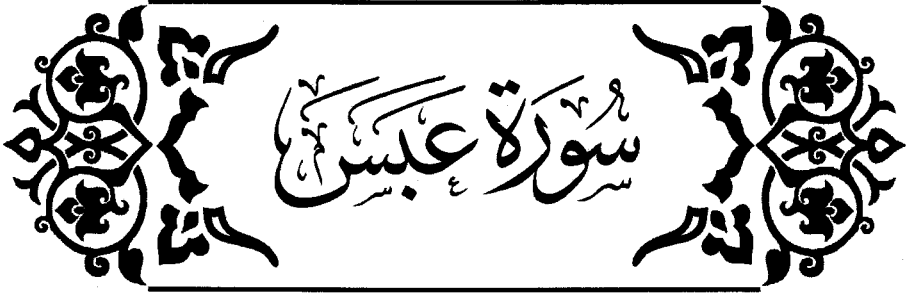 سُورَة عَبَسَ